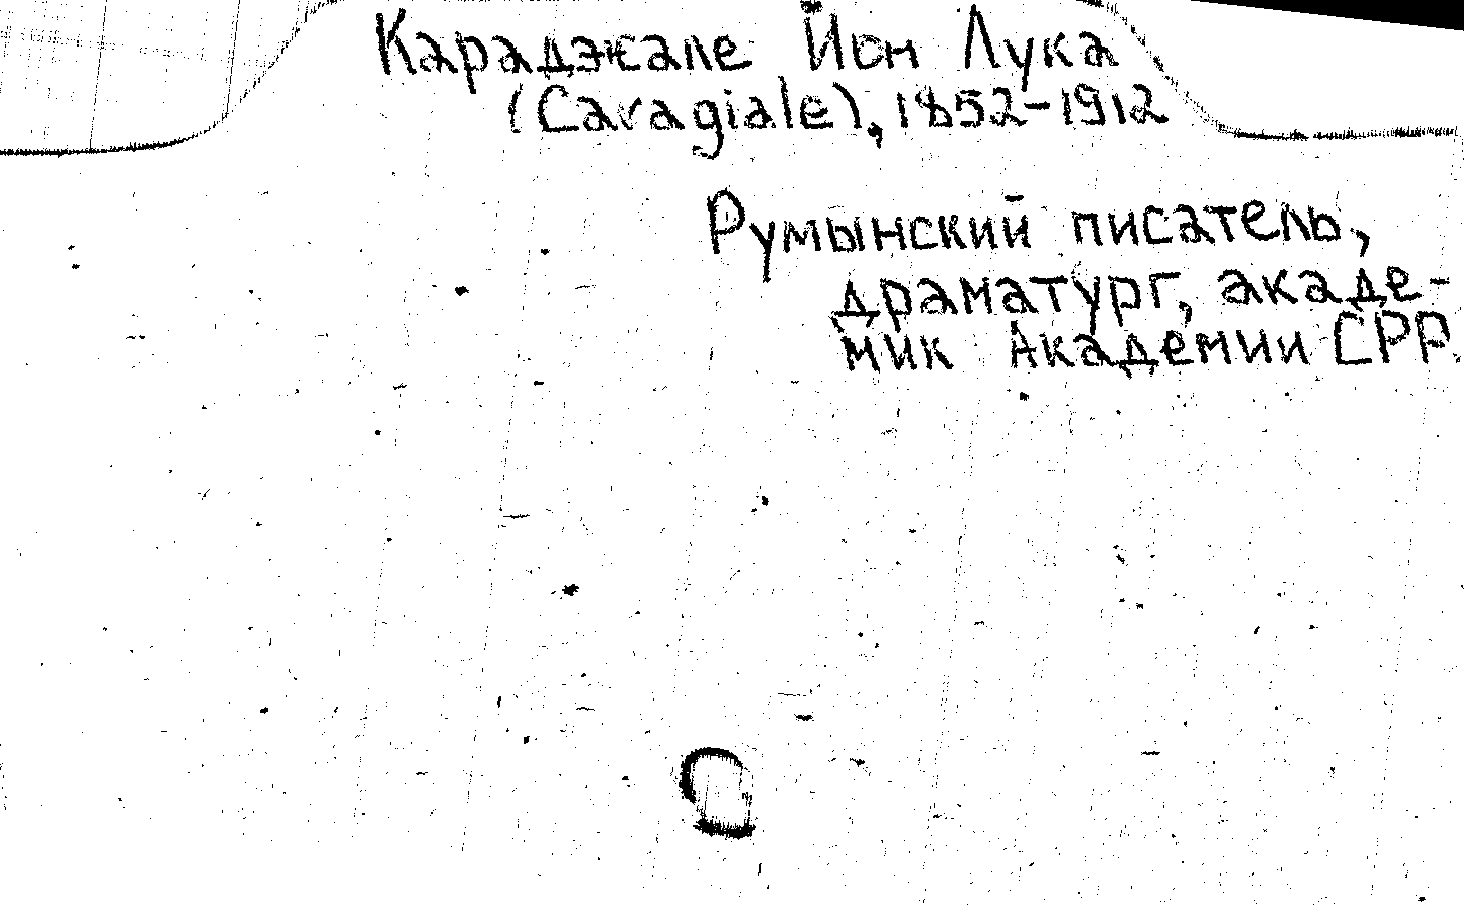 Караджале Йон Лука
(Caragiale), 1852-1912
Румынский писатель,
драматург, акаде-
мик Академии СРР.